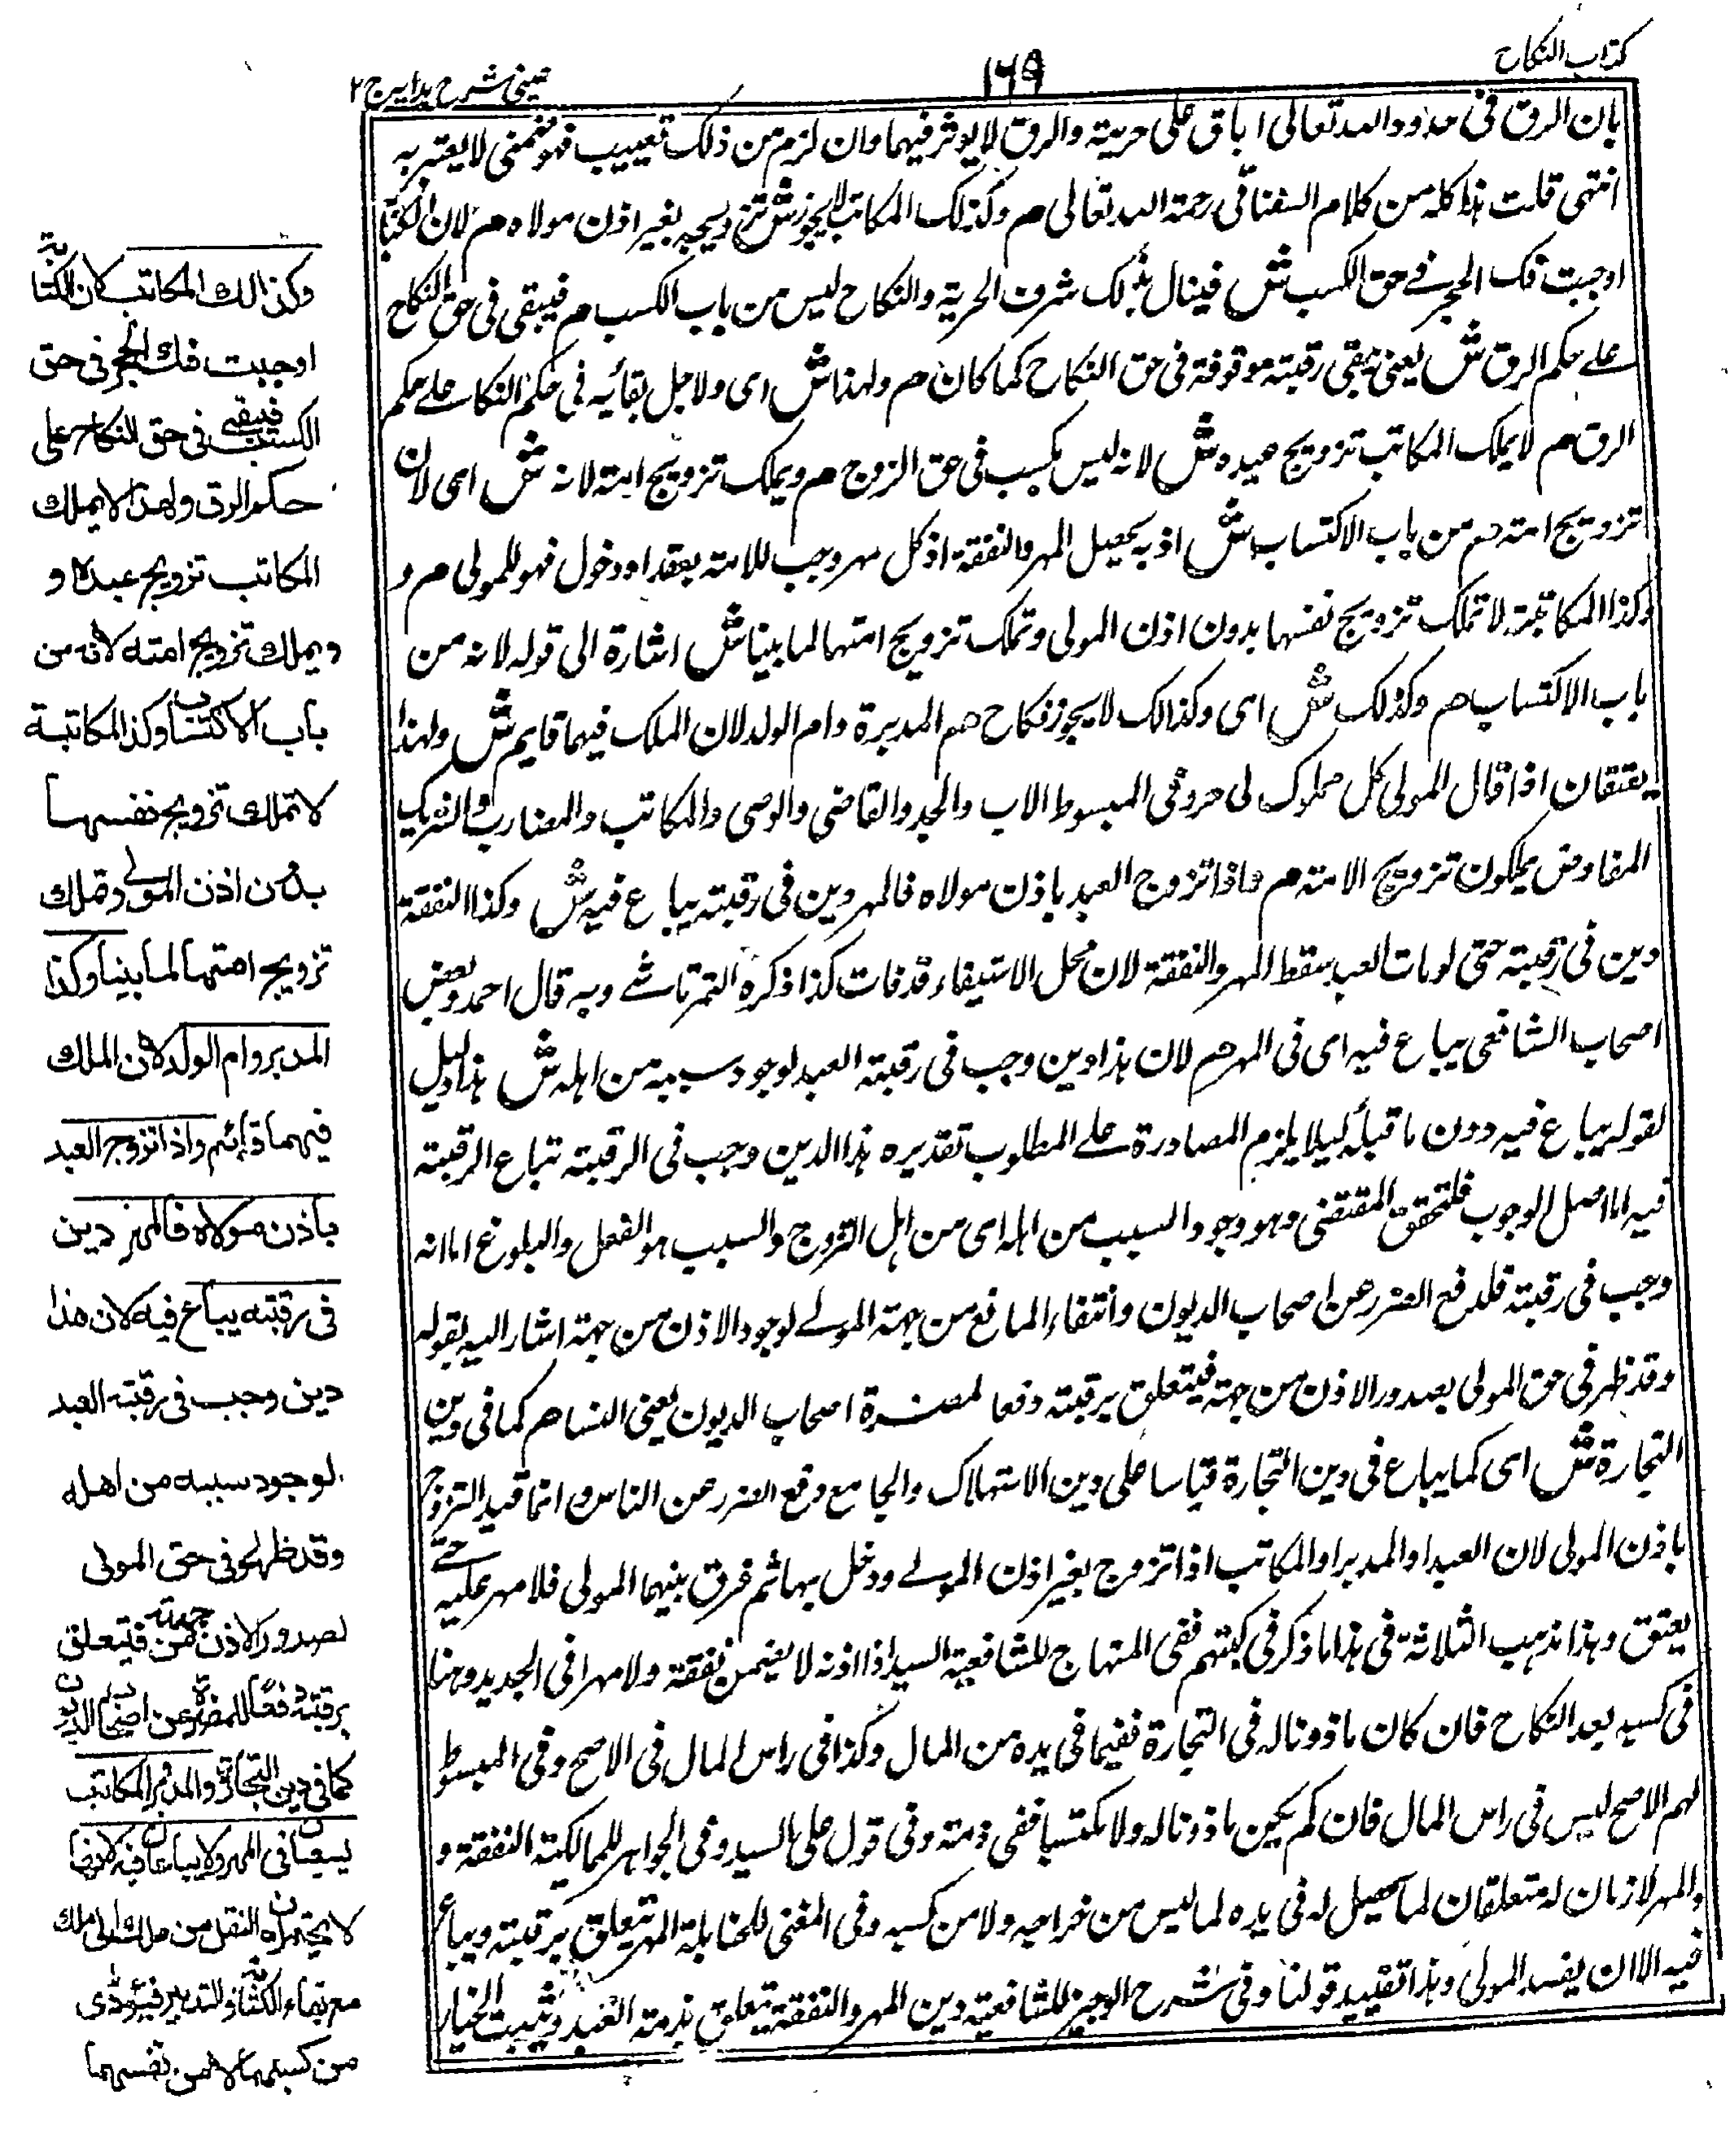 كتاب النكاح
١٦٩
عینی شرح ہدایہ ج ٢
بان الرق فی حدود اللہ تعالی باق علی حریتہ والرق لا یوثر فیہما وان لزم من ذلک تعییب فہو ضمنی لا یعتبر بہ
انتہی قلت ہذا کلہ من کلام السغناقی رحمۃ اللہ تعالی م وکذلک المکاتب لا یجوز ش تزویجہ بغیر اذن مولاہ م لان الکتابۃ
اوجبت فک الحجر فے حق الکسب ش فینال بذلک شرف الحریۃ والنکاح لیس من باب الکسب م فیبقی فی حق النکاح
علے حکم الرق ش یعنی تبقی رقبتہ موقوفۃ فی حق النکاح کما کان م ولہذا ش ای ولاجل بقائہ فی حکم النکاح علے حکم
الرق م لا یملک المکاتب تزویج عبدہ ش لانہ لیس بکسب فی حق الزوج م ویملک تزویج امتہ لانہ ش ای لان
تزویج امتہ م من باب الاکتساب ش اذ بہ یحصل المہر والنفقۃ اذ کل مہر وجب للامۃ بعقد او دخول فہو للمولی م و
وکذا المکاتبۃ لا تملک تزویج نفسہا بدون اذن المولی وتملک تزویج امتہا لما بینا ش اشارۃ الی قولہ لانہ من
باب الاکتساب م وکذلک ش ای وکذالک لا یجوز نکاح م المدبرۃ وام الولد لان الملک فیہما قایم ش ولہذا
یعتقان اذا قال المولی کل مملوک لی حر وفی المبسوط الاب والجد والقاضی والوصی والمکاتب والمضارب والشریک
المفاوض یملکون تزویج الامۃ م واذا تزوج العبد باذن مولاہ فالمہر دین فی رقبتہ یباع فیہ ش وکذا النفقۃ
دین فی رقبتہ حتی لو مات العبد سقط المہر والنفقۃ لان محل الاستیفاء قد فات کذا ذکرہ التمرتاشے وبہ قال احمد وبعض
اصحاب الشافعی یباع فیہ ای فی المہر م لان ہذا دین وجب فی رقبۃ العبد لوجود سببہ من اہلہ ش ہذا دلیل
لقولہ یباع فیہ دون ما قبلہ کیلا یلزم المصادرۃ علے المطلوب تقدیرہ ہذا الدین وجب فی الرقبۃ تباع الرقبۃ
فیہ اما اصل الوجوب فلتحقق المقتضی وہو وجود السبب من اہلہ ای من اہل التزوج والسبب ہو الفعل والبلوغ اما انہ
وجب فی رقبتہ فلدفع الضرر عن اصحاب الدیون وانتفاء المانع من جہۃ المولے لوجود الاذن من جہتہ اشار الیہ بقولہ
وقد ظہر فی حق المولی بصدور الاذن من جہتہ فیتعلق برقبتہ دفعا لمضرۃ اصحاب الدیون یعنی النسا م کما فی دین
التجارۃ ش ای کما یباع فی دین التجارۃ قیاسا علی دین الاستہلاک والجامع دفع الضرر عن الناس وانما قید التزوج
باذن المولی لان العبد او المدبر او المکاتب اذا تزوج بغیر اذن المولے ودخل بہا ثم فرق بینہما المولی فلا مہر علیہ حتے
یعتق وہذا مذہب الثلاثۃ فی ہذا ما ذکر فی کتبہم ففی المنہاج للشافعیۃ السید اذا اذنہ لا یضمن نفقۃ ولا مہرا فی الجدید وہنا
فی کسبہ بعد النکاح فان کان ماذونا لہ فی التجارۃ ففیما فی یدہ من المال وکذا فی راس المال فی الاصح وفی المبسوط
لہم الاصح لیس فی راس المال فان کم یکن ماذونا لہ ولا مکتسبا ففی ذمتہ وفی قول علی السید وفی الجواہر للمالکیۃ النفقۃ و
والمہر لازمان لہ متعلقان لما یحصل لہ فی یدہ لما لیس من خراجہ ولا من کسبہ وفی المغنی للحنابلۃ المہر یتعلق برقبتہ ویباع
فیہ الا ان یفسد المولی وہذا تقیید قولنا وفی شرح الوجیز للشافعیۃ دین المہر والنفقۃ یتعلق بذمۃ العبد ویثبت الخیار
وكذلك المكاتب لان الكتابة
اوجبت فك الحجر فی حق
الكسب فیبقى فی حق النكاح على
حكم الرق ولهذا لا يملك
المكاتب تزويج عبده و
ويملك تزويج امته لانه من
باب الاكتساب وكذا المكاتبة
لا تملك تزويج نفسها
بدون اذن المولے وتملك
تزويج امتها لما بينا وكذا
المدبر وام الولد لان الملك
فيهما قائم واذا تزوج العبد
باذن مولاه فالمهر دين
فی رقبته يباع فيه لان هذا
دين وجب فی رقبة العبد
لوجود سببه من اهله
وقد ظهر فی حق المولى
بصدور الاذن من جهته فيتعلق
برقبته دفعا للمضرة عن اصحاب الديون
كما فی دين التجارة والمدبر والمكاتب
يسعيان فی المهر ولا يباعان فيه لانهما
لا يحتملان النقل من ملك الى ملك
مع بقاء الكتابة والتدبير فيؤدى
من كسبهما لا من نفسهما